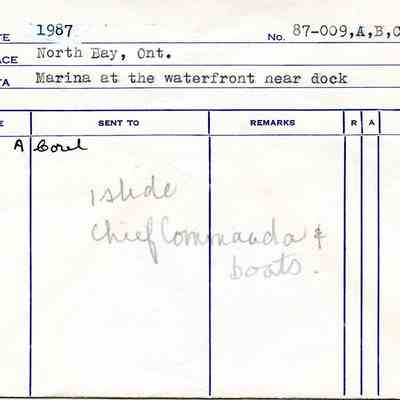 TE 1987 No. 87-009,A,B,C
ACE North Bay, Ont.
TA Marina at the waterfront near dock
E SENT TO REMARKS R A
A Corel
1 slide
Chief Commanda &
boats.